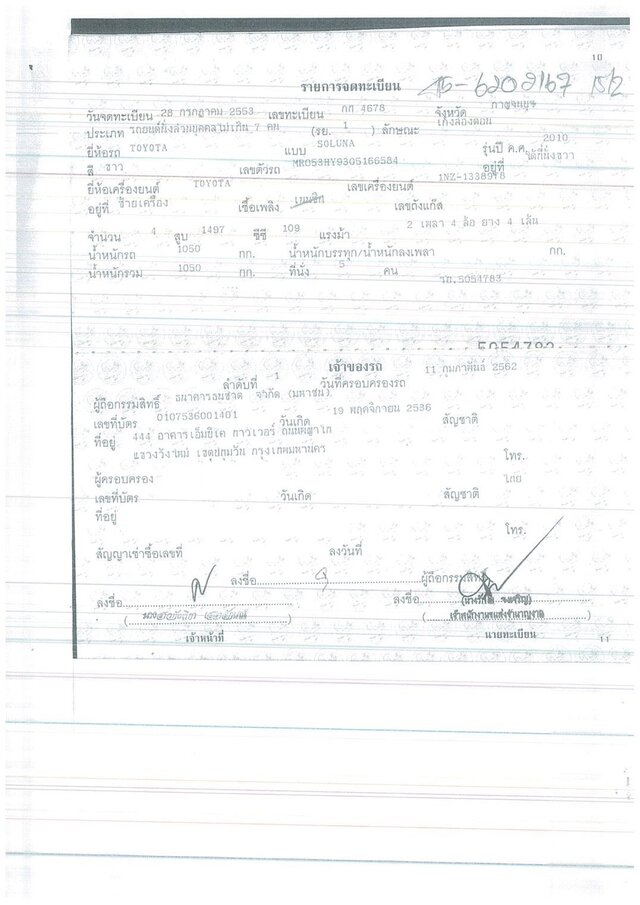 10
รายการจดทะเบียน
วันจดทะเบียน 28 กรกฎาคม 2553 เลขทะเบียน กก 4678 จังหวัด กาญจนบุรี
ประเภท รถยนต์นั่งส่วนบุคคลไม่เกิน 7 คน (รย. 1 ) ลักษณะ เก๋งสองตอน
ยี่ห้อรถ TOYOTA แบบ SOLUNA รุ่นปี ค.ศ. 2010
สี ขาว เลขตัวรถ MR053HY9305166584 อยู่ที่
ยี่ห้อเครื่องยนต์ TOYOTA เลขเครื่องยนต์ 1NZ-1338978
อยู่ที่ ซ้ายเครื่อง เชื้อเพลิง เบนซิน เลขถังแก๊ส
จำนวน 4 สูบ 1497 ซีซี 109 แรงม้า 2 เพลา 4 ล้อ ยาง 4 เส้น
น้ำหนักรถ 1050 กก. น้ำหนักบรรทุก/น้ำหนักลงเพลา กก.
น้ำหนักรวม 1050 กก. ที่นั่ง 5 คน
5054783
เจ้าของรถ
ลำดับที่ 1 วันที่ครอบครองรถ 11 กุมภาพันธ์ 2562
ผู้ถือกรรมสิทธิ์ ธนาคารธนชาต จำกัด (มหาชน)
เลขที่บัตร 0107536001401 วันเกิด 19 พฤศจิกายน 2536 สัญชาติ
ที่อยู่ 444 อาคารเอ็มบีเค ทาวเวอร์ ถนนพญาไท
แขวงวังใหม่ เขตปทุมวัน กรุงเทพมหานคร โทร.
ผู้ครอบครอง ไทย
เลขที่บัตร วันเกิด สัญชาติ
ที่อยู่
โทร.
สัญญาเช่าซื้อเลขที่ ลงวันที่
ลงชื่อ ผู้ถือกรรมสิทธิ์
ลงชื่อ ลงชื่อ
เจ้าพนักงานขนส่งชำนาญงาน
เจ้าหน้าที่ นายทะเบียน
11